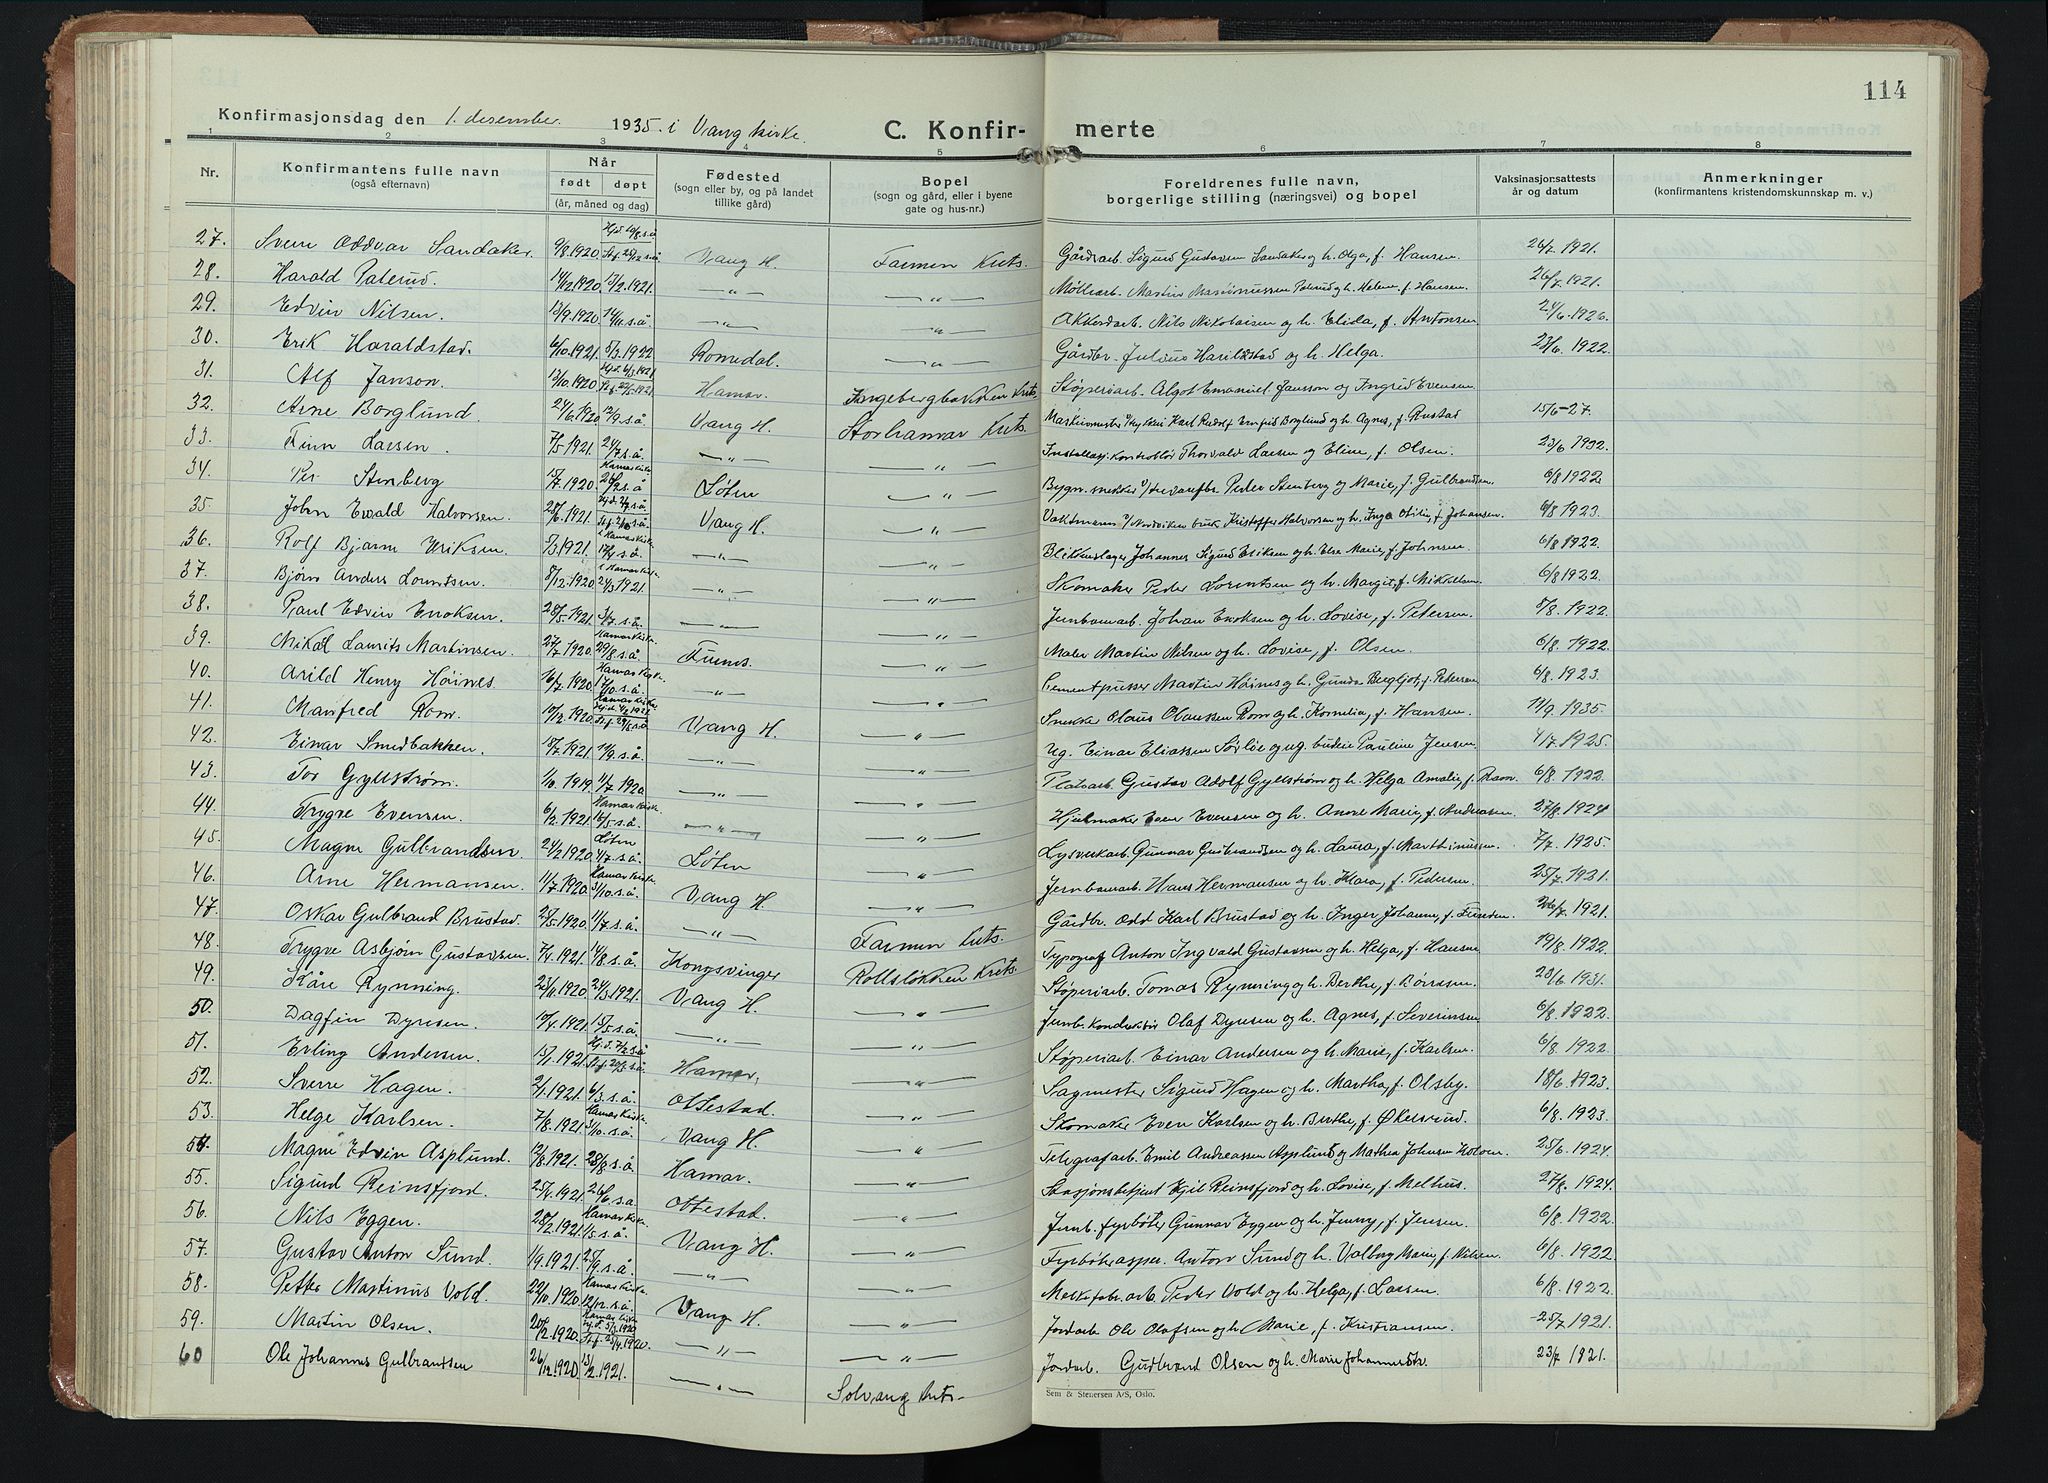 114
Konfirmasjonsdag den 1. desember 1935 i Vang kirke.
C. Konfir- merte
1 2 3 4 5 6 7 8
Nr. Konfirmantens fulle navn (også efternavn) Når født døpt (år, måned og dag) Fødested (sogn eller by, og på landet tillike gård) Bopel (sogn og gård, eller i byene gate og hus-nr.) Foreldrenes fulle navn, borgerlige stilling (næringsvei) og bopel Vaksinasjonsattests år og datum Anmerkninger (konfirmantens kristendomskunnskap m. v.)
27. Svern Oddvar Sandaker. 9/8.1920. Vang H. Farmen Krets. Gårdsarb. Sigurd Gustavsen Sandaker og h. Olga, f. Hansen. 26/7.1921.
28. Harald Paterud. 14/12.1920. 13/2.1921. —"— —"— Møllearb. Martin Paterud og h. Helene f. Hansen. 26/7.1921.
29. Edvin Nilsen. 13/9.1920. 14/11.s.å. —"— —"— Akkordarb. Nils Nikolaisen og h. Elida, f. Antonsen 24/6.1926.
30. Erik Haraldstad. 6/10.1921. 5/3.1922 Romedal. —"— Gårdbr. Julius Haraldstad og h. Helga. 23/6.1922.
31. Alf Janson. 13/10.1920 Hamar. Ingebergbakken Krets. Støperiarb. Algot Emanuel Jansson og Ingrid Evensen.
32. Arne Borglund. 24/6.1920. 12/9.s.å. Vang H. Storhamar Krets. Karl Rudolf Borglund og h. Agnes, f. Rustad 15/6-27.
33. Finn Larsen. 7/5.1921. 24/7.s.å. —"— —"— Installasj. kontrollør Thorvald Larsen og Eline, f. Olsen. 23/6.1932.
34. Per Stenberg 15/7.1920. Hamar Kirke. 26/9.s.å Løten —"— Bygn. snekker Peder Stenberg og Marie, f. Gulbrandsen. 6/8 1922.
35. John Ewald Halvorsen. 28/6.1921. Vang H. —"— Vaktmann Kristoffer Halvorsen og h. Inga Otilie, f. Johansen. 6/8 1923.
36. Rolf Bjarne Eriksen. 5/3.1921. i Hamar Kirke. —"— —"— Blikkenslager Johannes Sigurd Eriksen og h. Else Marie, f. Johnsen. 6/8.1922.
37. Bjørn Anders Lorentsen. 8/12.1920. i Hamar Kirke. 24/3.1921. —"— —"— Skomaker Peder Lorentsen og h. Margit, f. Mikkelsen. 6/8 1922.
38. Paul Edvin Enoksen. 28/5.1921. 3/7.s.å. —"— —"— Jernbanearb. Johan Enoksen og h. Lovise, f. Petersen. 8/8.1922.
39. Mikal Laurits Martinsen. 27/7.1920. Hamar Kirke. 29/8.s.å. Furnes. —"— Maler Martin Nilsen og h. Lovise, f. Olsen. 6/8.1922.
40. Arild Henry Høines. 16/7.1920. Hamar Kirke. 17/10.s.å. —"— —"— Cementpusser Martin Høines og h. Gunda Bergljot, f. Petersen 6/8.1923.
41. Manfred Rom. 10/12.1920. Vang H. —"— Snekker Olaus Olaussen Rom og h. Kornelia, f. Hansen. 11/9.1935.
42. Einar Smedbakken. 18/7.1921. 11/9.s.å. —"— —"— Ug. Einar Eliassen Sørlie og ug. budeie Pauline Jensen. 4/7.1925.
43. Tor Gyllstrøm. 1/10.1919. 11/7.1920 —"— —"— Gustav Adolf Gyllstrøm og h. Helga Amalie, f. Ram. 6/8.1922.
44. Trygve Evensen. 6/2.1921. Hamar Kirke. 16/5.s.å. —"— —"— Hjulmaker Even Evensen og h. Anne Marie, f. Andreasen. 27/8.1924
45. Magne Gulbrandsen. 24/2.1920. Løten 4/7.s.å. Løten —"— Lysverkarb. Gunnar Gulbrandsen og h. Laura, f. Marthinussen. 7/7.1925.
46. Arne Hermansen. 11/7.1920. Hamar Kirke. 31/10.s.å. Vang H. —"— Jernbanearb. Hans Hermansen og h. Klara, f. Pedersen. 25/7.1931.
47. Oskar Gulbrand Brustad. 23/5.1920. 11/7.s.å. —"— Farmen Krets. Gårdbr. Odd Karl Brustad og h. Inger Johanne, f. Furseden. 26/7.1921.
48. Trygve Asbjørn Gustavsen. 7/4.1921. 14/8.s.å. Kongsvinger Rollsløkken Krets. Typograf Anton Ingvald Gustavsen og h. Helga, f. Hansen 19/8.1922.
49. Kåre Rynning. 23/11.1920. 24/3.1921. Vang H. —"— Støperiarb. Tomas Rynning og h. Berthe, f. Børresen. 23/6.1931.
50. Dagfin Dyresen. 10/4.1921. 15/5.s.å. —"— —"— Jernb. konduktør Olaf Dyresen og h. Agnes, f. Severinsen 6/8.1922.
51. Erling Andersen. 15/1.1921. Hamar. —"— Støperiarb. Einar Andersen og h. Marie, f. Karlsen. 6/8.1922.
52. Sverre Hagen. 2/1.1921. 6/3.s.å. Ottestad. —"— Sagmester Sigurd Hagen og h. Martha, f. Olsby. 18/6.1923.
53. Helge Karlsen. 7/8.1921. Hamar Kirke. 31/10.s.å. Vang H. —"— Skomaker Even Karlsen og h. Berthe, f. Økelsrud. 6/8.1923.
54. Magne Edvin Asplund. 12/8.1921. 28/8.s.å Hamar. —"— Telegrafarb. Emil Andreassen Asplund og Marthea Johnsen Holoen. 25/6.1924.
55. Sigurd Reinsfjord. 25/4.1921. 26/6.s.å. Ottestad. —"— Stasjonsbetjent Kjil Reinsfjord og h. Lovise, f. Melhus. 27/8.1924.
56. Nils Eggen. 28/2.1921. Hamar Kirke. Vang H. —"— Jernb. fyrbøter Gunnar Eggen og h. Jenny, f. Jensen. 6/8.1922.
57. Gustav Anton Sund. 1/9.1921. 25/9.s.å. —"— —"— Fyrbøterasper. Anton Sund og h. Valborg Marie, f. Nilsen. 6/8.1922.
58. Petter Martinus Vold. 22/10.1920. Hamar Kirke. 12/12.s.å. Vang H. —"— Peder Vold og h. Helga, f. Larsen. 6/8.1922.
59. Martin Olsen. 20/2.1920. Hamar Kirke —"— —"— Jordarb. Ole Olafsen og h. Marie, f. Kristiansen. 25/7 1921.
60 Ole Johannes Gulbrandsen 26/12.1920. 13/2.1921. —"— Solvang Krets. Jordarb. Gudbrand Olsen og h. Marie Johannesdtr. 23/7 1821.
Sem & Stenersen A/S, Oslo.